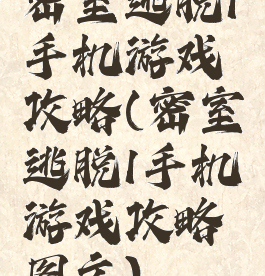 密室逃脱1
手机游戏
攻略(密室
逃脱1手机
游戏攻略
图文)